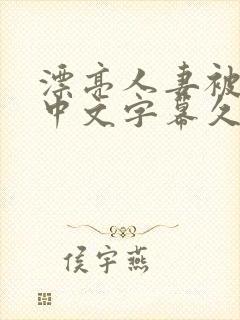 漂亮人妻被
中文字幕久
侯宇燕